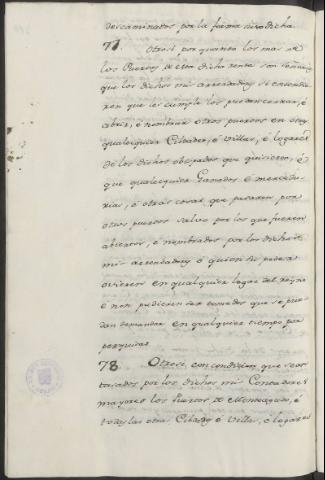 descaminados por la forma susodicha
77. Otrosi por quanto los mas de
los Puertos de esta dicha renta son
que los dichos mis arrendadores si entendie
ren que les cumple los puedan cerrar, é
abrir, é nombrar otros puertos en otras
qualesquier Cibdades, é Villas, é logares
de los dichos obispados que quisieren, é
que qualesquier Ganados é mercadu
rias, é otras cosas que pasaren por
otros puertos salvo por los que fueren
abiertos, é nombrados por los dichos
mis arrendadores ó quien su poder
ovieren en qualquier logar del reyno
é non pudieren ser tomados que se pue
dan demandar en qualquier tiempo por
perdidos
78. Otrosi con condicion que sean
por los dichos mis Contadores
mayores los Puertos de Monteagudo, é
todas las otras Cibdades é Villas, é logares